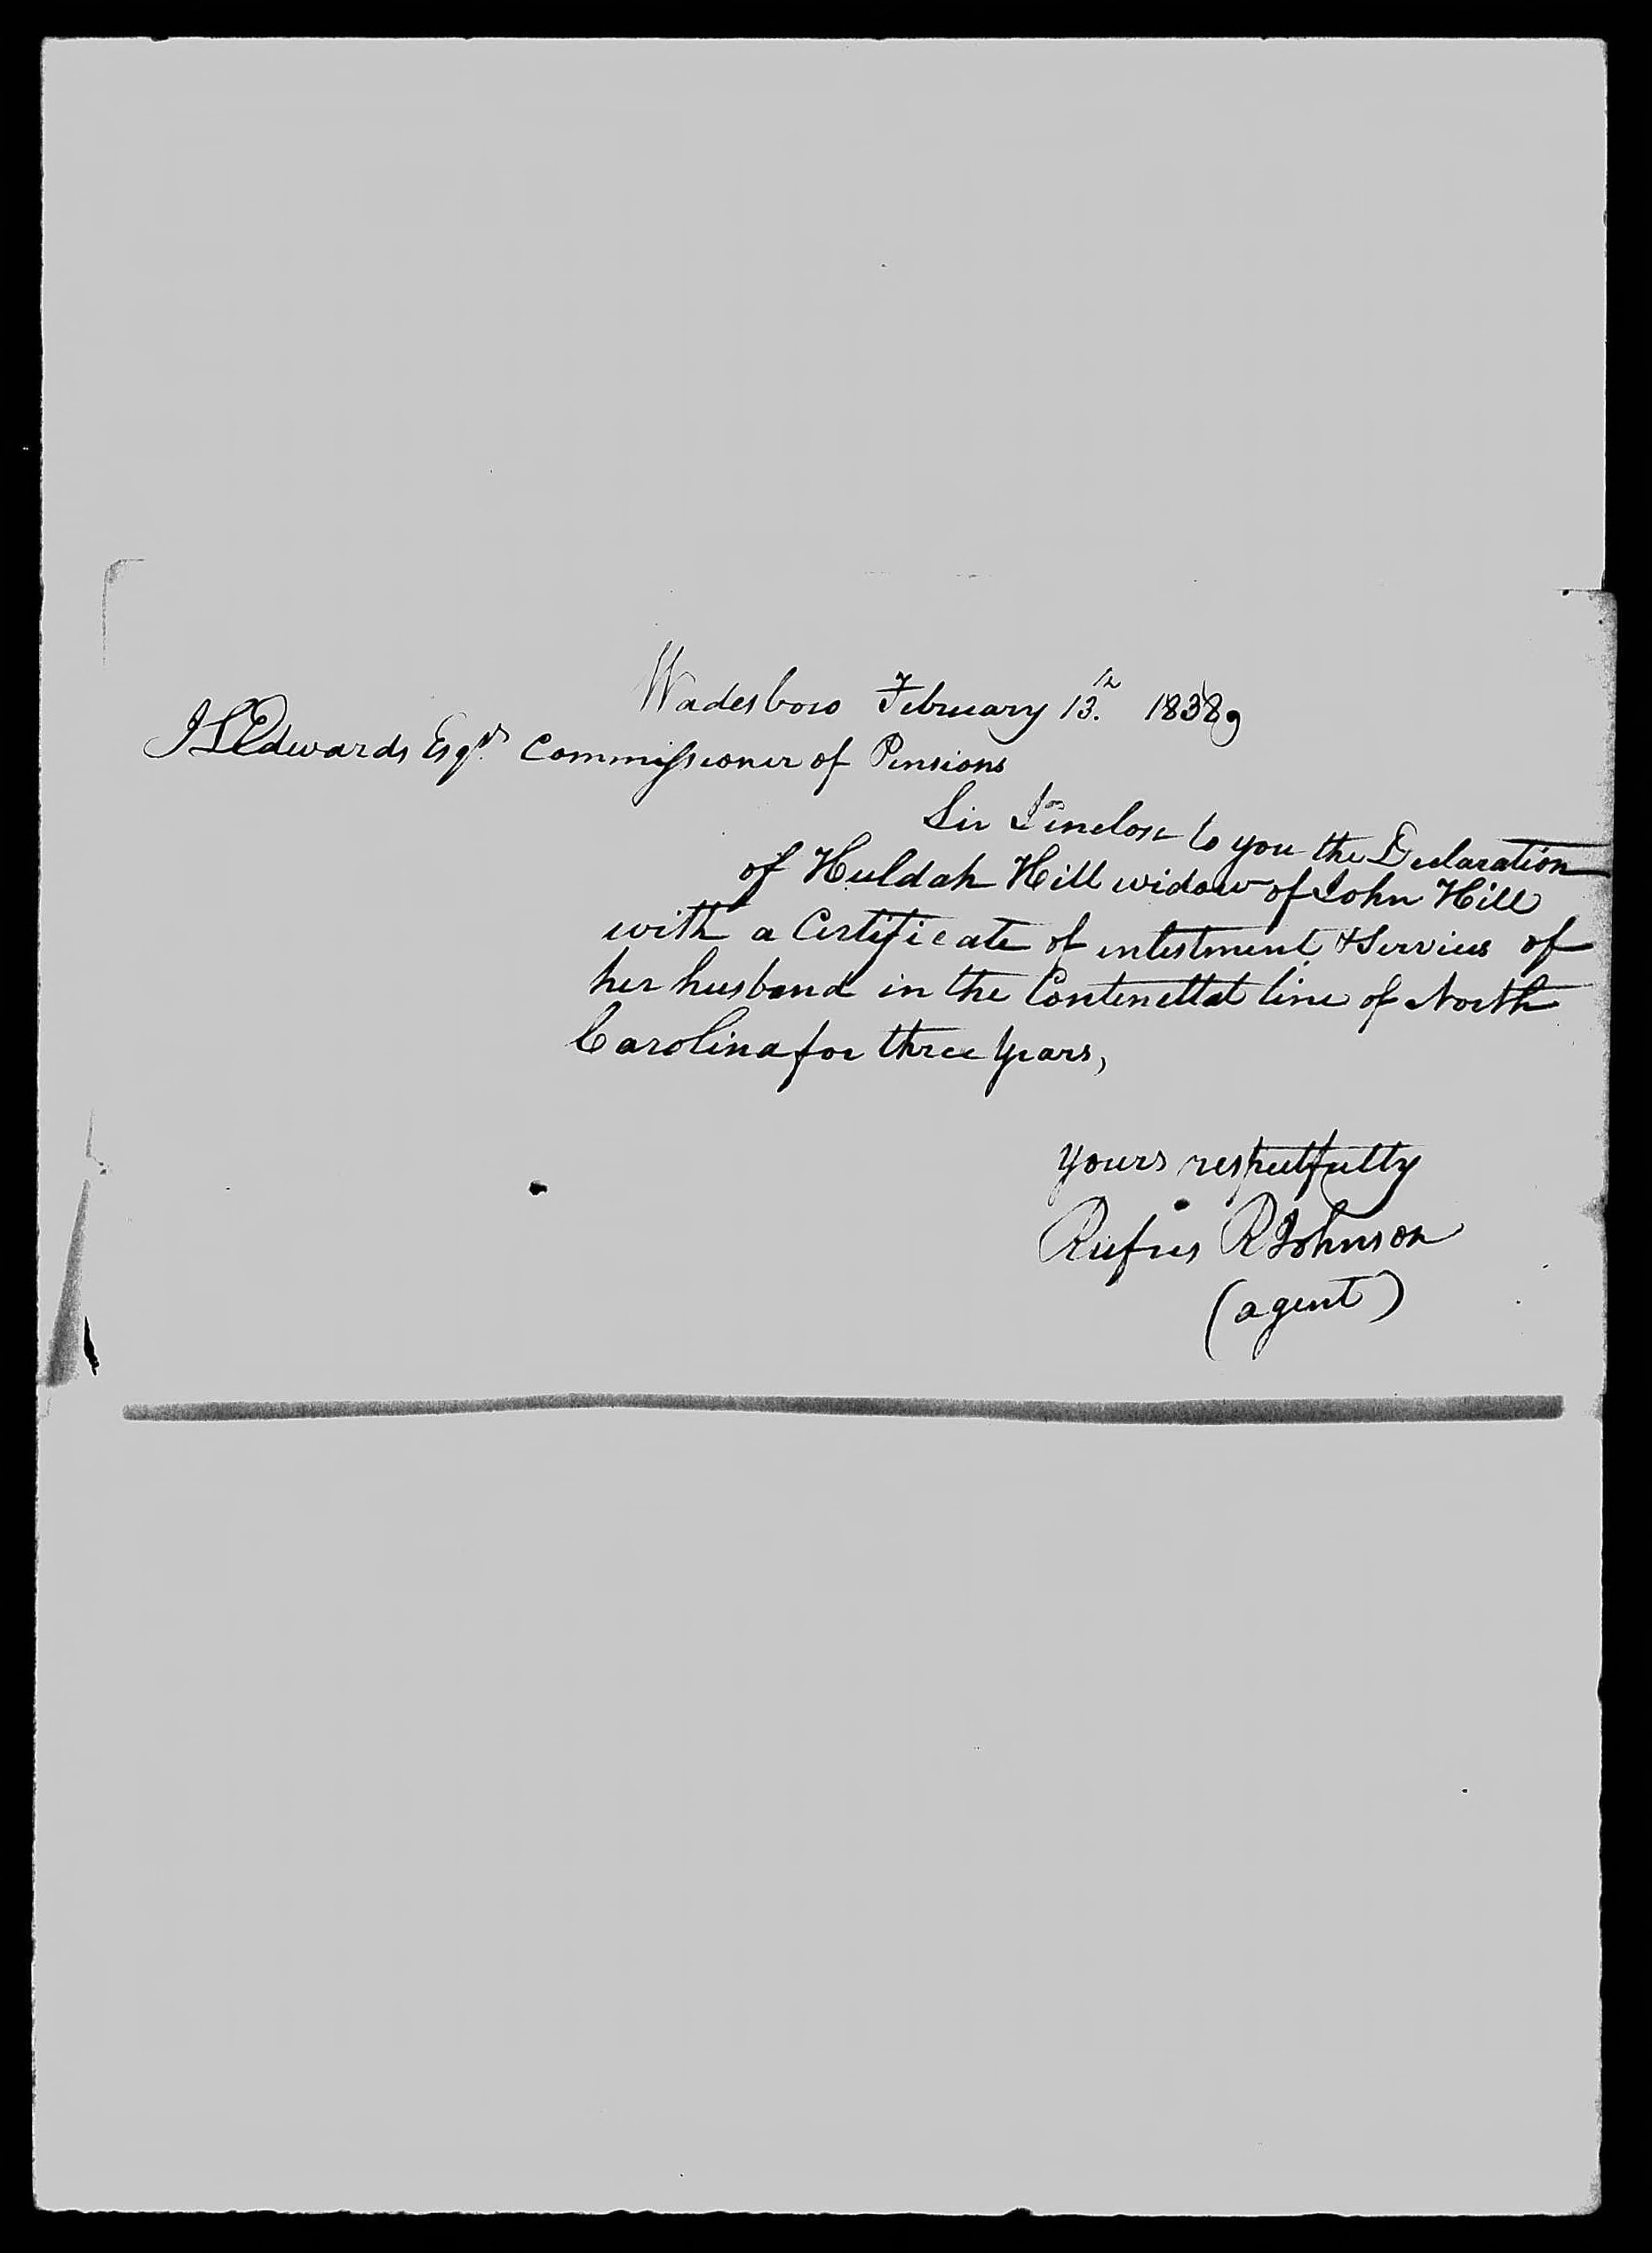 Wadesboro February 13.th 18389
J L Edwards Esqr. Commissioner of Pensions
Sir I inclose to you the Declaration
of Huldah Hill widow of John Hill
with a Certificate of enlestment & Services of
her husband in the Contenettal line of North
Carolina for three years,
yours respectfully
Rufus R Johnson
(agent)